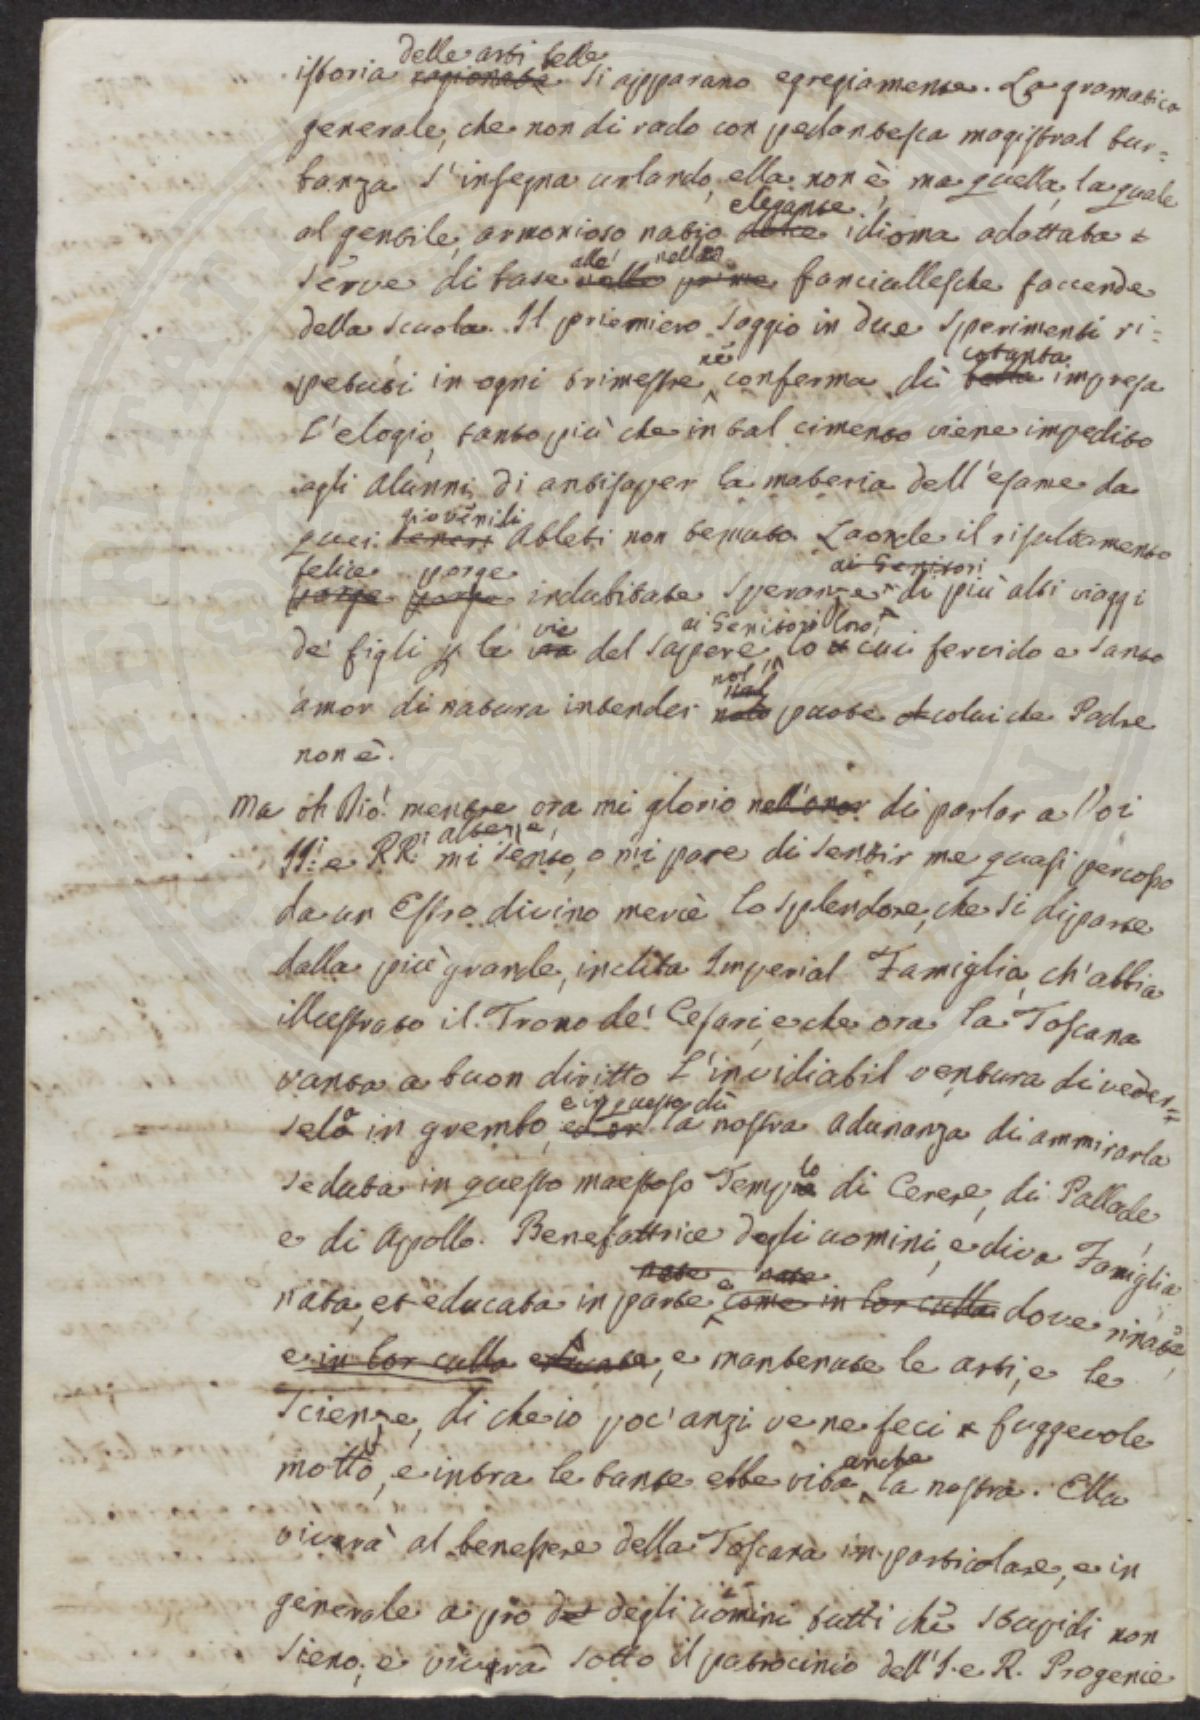 delle arti belle
istoria ragionata si apparano egregiamente. La gramatica
generale, che non di rado con pedantesca magistral bur=
banza s'insegna urlando, ella non è, ma quella, la quale
elegante
al gentile, armonioso natio dolce idioma adattata
alle nelle
serve di base nelle prime fanciullesche faccende
della scuola. Il priemiero saggio in due sperimenti ri=
ne cotanta
petuti in ogni trimestre, conferma di bella impresa
l'elogio, tanto più che in tal cimento viene impedito
agli alunni di antisaper la materia dell'esame da
giovenili
quei teneri Atleti non temuta. Laonde il risultamento
felice porge ai Genitori
porge porge indubitate speranze di più alti viaggi
vie ai Genitori loro,
de' figli p le via del sapere, lo cui fervido e santo
nol
nal
amor di natura intender nolo puote colui che Padre
non è.
Ma oh Dio! mentre ora mi glorio nell'onor di parlar a Voi
altera,
II. e RR. mi sento, o mi pare di sentir me quasi percosso
da un Estro divino mercè lo splendore, che si diparte
dalla più grande, inclita Imperial Famiglia, ch'abbia
illustrato il Trono de' Cesari, e che ora la Toscana
vanta a buon diritto l'invidiabil ventura di veder=
e in questo dì
sela in grembo, ed or la nostra adunanza di ammirarla
lo
seduta in questo maestoso Tempio di Cerere, di Pallade
e di Apollo. Benefattrice degli uomini, e diva Famiglia
nate e nate
nata, et educata in parte come in lor culla dove rinate,
e in lor culla educate, e mantenute le arti, e le
Scienze, di che io poc'anzi ve ne feci fuggevole
anche
motto, e intra le tante ebbe vita la nostra. Ella
viverà al benessere della Toscana in particolare, e in
generale a pro de degli uomini tutti che stupidi non
sieno, e viverà sotto il patrocinio dell'I. e R. Progenie